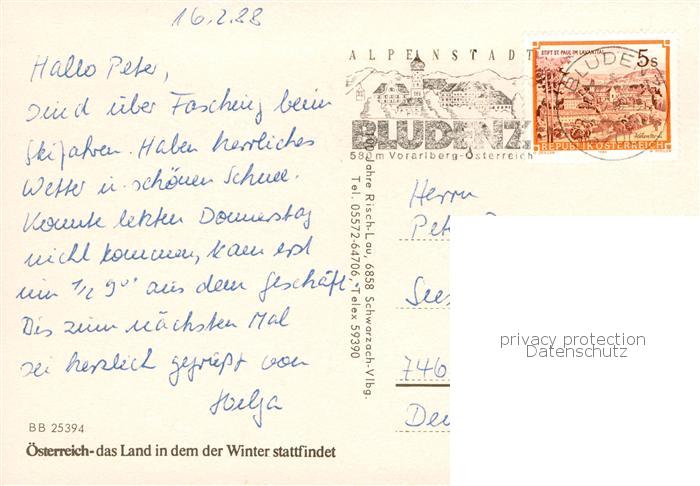 16.2.88
Hallo Peter,
sind über Fasching beim
Skifahren. Haben herrliches
Wetter u. schönen Schnee.
Konnte letzten Donnerstag
nicht kommen, kam erst
um 1/2 9°° aus dem Geschäft.
Bis zum nächsten Mal
sei herzlich gegrüßt von
Helga
BB 25394
Österreich-das Land in dem der Winter stattfindet
ALPENSTADT
BLUDENZ
580m Vorarlberg-Österreich
STIFT ST. PAUL IM LAVANTTAL
5s
REPUBLIK ÖSTERREICH
BLUDE
Jahre Risch-Lau, 6858 Schwarzach-Vlbg.
Tel. 05572-64706, Telex 59390
Herrn
Pet
See
746
Deu
privacy protection
Datenschutz